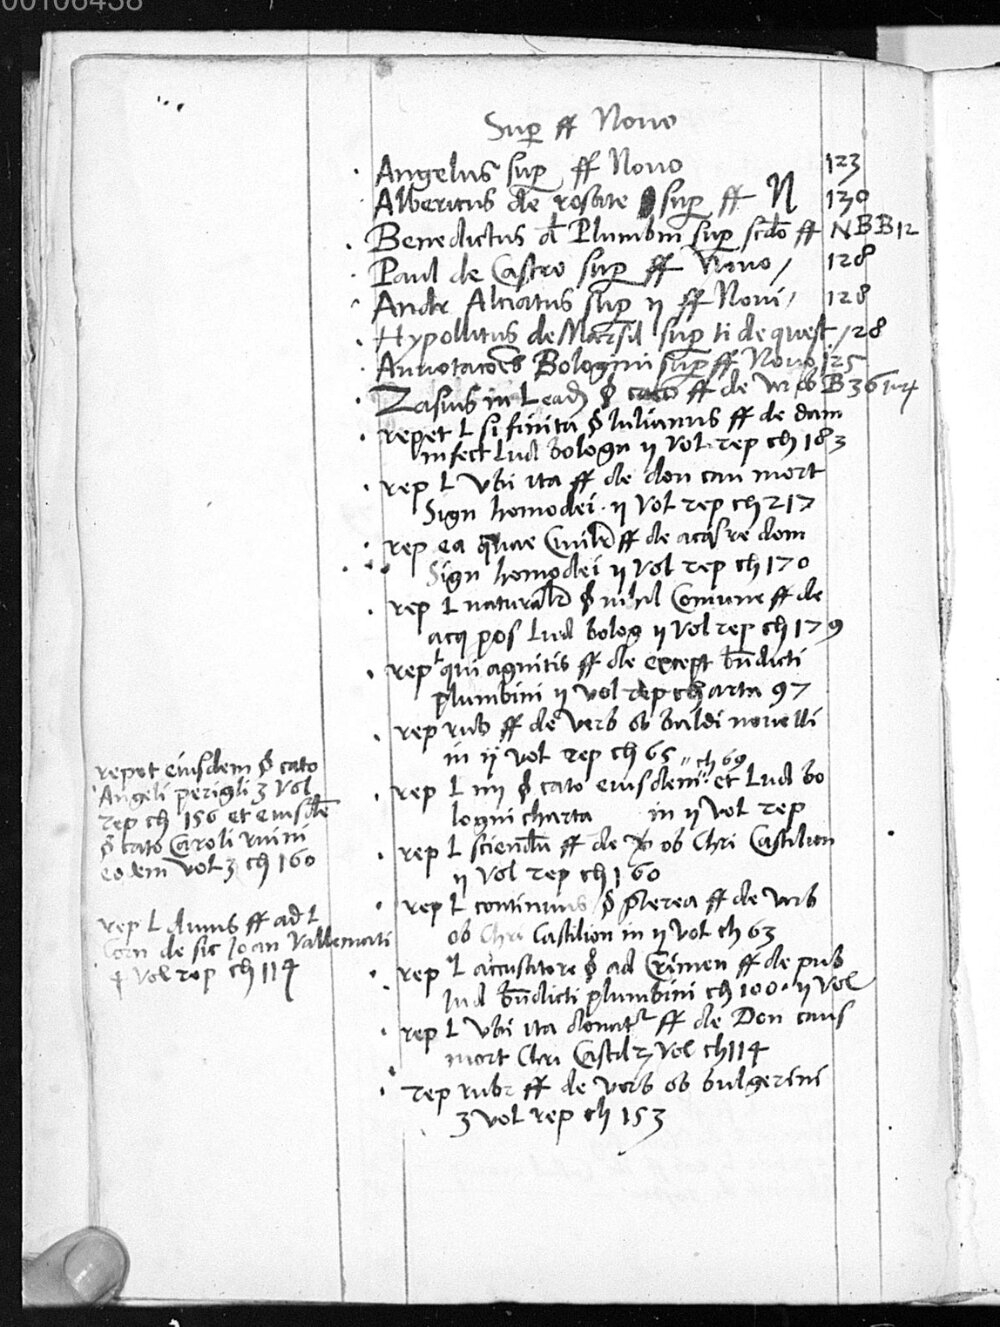 00106438
Sup ff Novo
Angelus sup ff Novo 123
Albericus de rosate sup ff N 130
Benedictus d Plumbin sup scdo ff NBB12
Paul de Castro sup ff Novo 128
Andr Alciatus sup ij ff Novi 128
Hypollitus de Marsil sup ti de quest 128
Annotationes Bolognini sup ff Novo 125
Zasius in L eadz § cato ff de verb B 36
repet L si finita § Iulianus ff de dam
infect Lud bologn ij Vol rep ch 183
rep L Vbi ita ff de don cau mort
Sign homodei ij Vol rep ch 217
rep ea quae Civilr ff de acq re dom
Sign homodei ij Vol rep ch 170
rep L naturalr § nihil Comune ff de
acq pos Lud bolog ij Vol rep ch 179
rep L qui agnitis ff de except bndicti
plumbini ij vol rep charta 97
rep rub ff de verb ob baldi novelli
in ij vol rep ch 65
ch 69
rep L iiij § cato eiusdem et Lud bo
logni charta in ij Vol rep
rep L sciendu ff de ob Chri Castilion
ij Vol rep ch 160
rep L continuus § pterea ff de verb
ob Chri Castilion in ij Vol ch 63
rep L accusatore § ad Crimen ff de pub
Iud bndicti plumbini ch 100 ij Vol
rep L Vbi ita donatr ff de Don caus
mort Chri Castil Vol ch 114
rep rubr ff de verb ob bulgerini
3 vol rep ch 153
repet eiusdem § cato
Angeli perigli 3 Vol
rep ch 156 et eiusde
§ cato Caroli ruini
eodem vol 3 ch 160
rep L ff ad L
Corn de sic Ioan
4 Vol rep ch 114